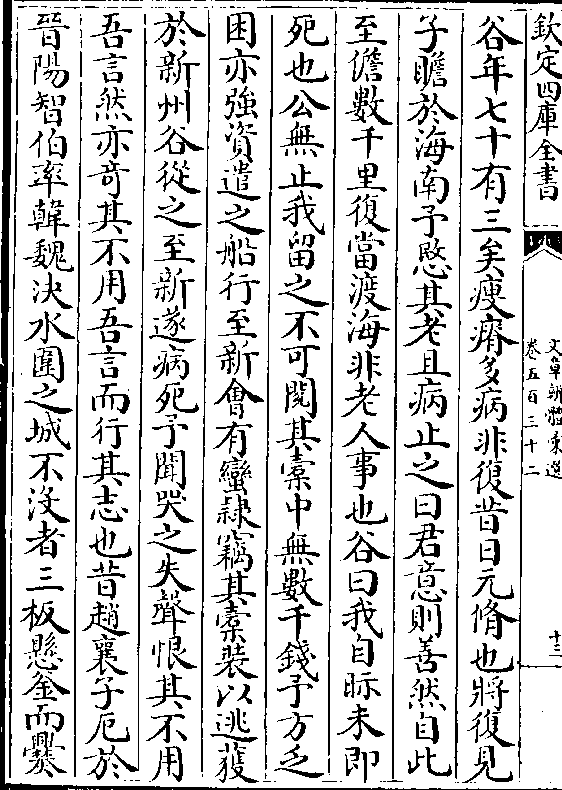 欽定四庫全書
文章辨體彙選
卷五百三十二
十三
谷年七十有三矣瘦瘠多病非復昔日元脩也將復見
子瞻於海南予愍其老且病止之曰君意則善然自此
至儋數千里復當渡海非老人事也谷曰我自眎未即
死也公無止我留之不可閱其橐中無數千錢予方乏
困亦強資遣之船行至新會有蠻隷竊其橐裝以逃獲
於新州谷從之至新遂病死予聞哭之失聲恨其不用
吾言然亦竒其不用吾言而行其志也昔趙襄子厄於
晉陽智伯率韓魏決水圍之城不沒者三板懸釡而爨